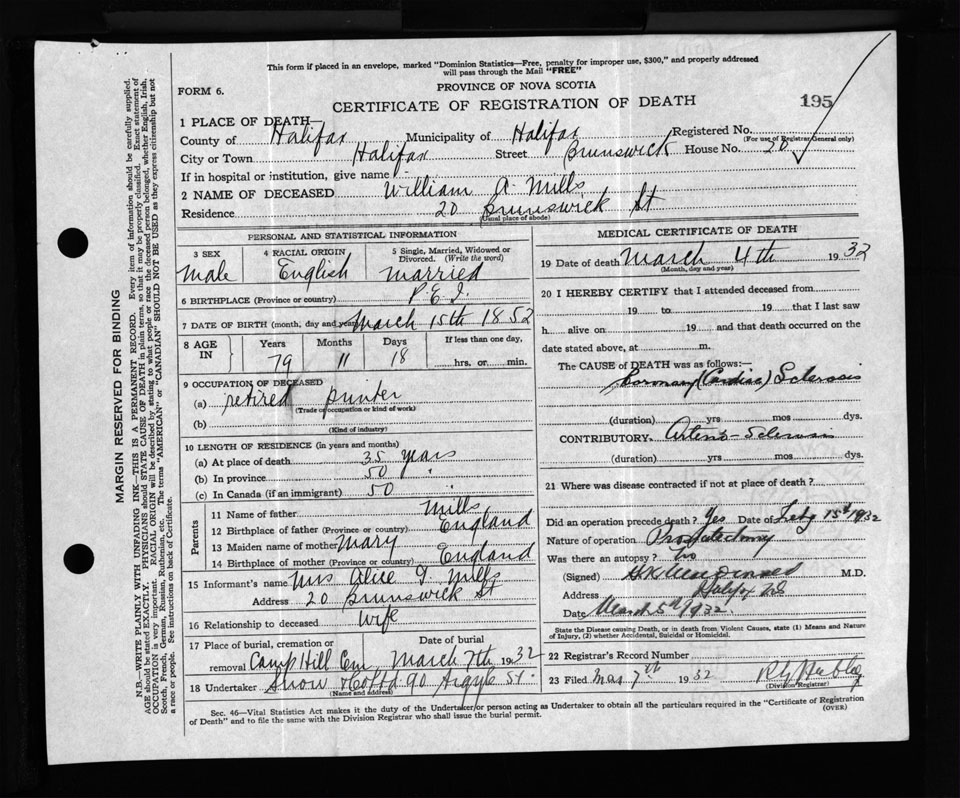 This form if placed in an envelope, marked "Dominion Statistics—Free, penalty for improper use, $300," and properly addressed
will pass through the Mail "FREE"
FORM 6.
PROVINCE OF NOVA SCOTIA
CERTIFICATE OF REGISTRATION OF DEATH
195
1 PLACE OF DEATH—
County of Halifax Municipality of Halifax Registered No.
(For use of Registrar General only)
City or Town Halifax Street Brunswick House No. 20
If in hospital or institution, give name
2 NAME OF DECEASED William A. Mills
Residence 20 Brunswick St
(Usual place of abode)
PERSONAL AND STATISTICAL INFORMATION
3 SEX 4 RACIAL ORIGIN 5 Single, Married, Widowed or
Divorced. (Write the word)
Male English Married
6 BIRTHPLACE (Province or country) P.E.I.
7 DATE OF BIRTH (month, day and year) March 15th 1852
8 AGE IN Years Months Days If less than one day,
79 11 18 hrs. or min.
9 OCCUPATION OF DECEASED
(a) retired printer
(Trade or occupation or kind of work)
(b)
(Kind of industry)
10 LENGTH OF RESIDENCE (in years and months)
(a) At place of death 35 years
(b) In province 50 "
(c) In Canada (if an immigrant) 50 "
Parents
11 Name of father Mills
12 Birthplace of father (Province or country) England
13 Maiden name of mother Mary
14 Birthplace of mother (Province or country) England
15 Informant's name Mrs Alice J. Mills
Address 20 Brunswick St
16 Relationship to deceased Wife
17 Place of burial, cremation or Date of burial
removal Camp Hill Cem March 7th 1932
18 Undertaker Snow & Co Ltd 90 Argyle St.
(Name and address)
MEDICAL CERTIFICATE OF DEATH
19 Date of death March 4th 1932
(Month, day and year)
20 I HEREBY CERTIFY that I attended deceased from
19 to 19 that I last saw
h alive on 19 and that death occurred on the
date stated above, at m.
The CAUSE OF DEATH was as follows:—
Coronary (Cardiac) Sclerosis
(duration) yrs mos dys.
CONTRIBUTORY. Arterio-Sclerosis
(duration) yrs mos dys.
21 Where was disease contracted if not at place of death?
Did an operation precede death? Yes Date of Feby 15th 1932
Nature of operation Prostatectomy
Was there an autopsy? No
(Signed) M.D.
Address Halifax NS
Date March 5th/1932.
State the Disease causing Death, or in death from Violent Causes, state (1) Means and Nature
of Injury, (2) whether Accidental, Suicidal or Homicidal.
22 Registrar's Record Number
23 Filed Mar 7th 1932
(Division Registrar)
Sec. 46—Vital Statistics Act makes it the duty of the Undertaker or person acting as Undertaker to obtain all the particulars required in the "Certificate of Registration
of Death" and to file the same with the Division Registrar who shall issue the burial permit.
(OVER)
MARGIN RESERVED FOR BINDING
N.B.—WRITE PLAINLY WITH UNFADING INK—THIS IS A PERMANENT RECORD. Every item of information should be carefully supplied.
AGE should be stated EXACTLY. PHYSICIANS should STATE CAUSE OF DEATH in plain terms, so that it may be properly classified. Exact statement of
OCCUPATION is very important. RACIAL ORIGIN will be described by stating to what people or race the deceased person belonged, whether English, Irish,
Scotch, French, German, Russian, Ruthenian, etc. The terms "AMERICAN" or "CANADIAN" SHOULD NOT BE USED as they express citizenship but not
a race or people. See instructions on back of Certificate.